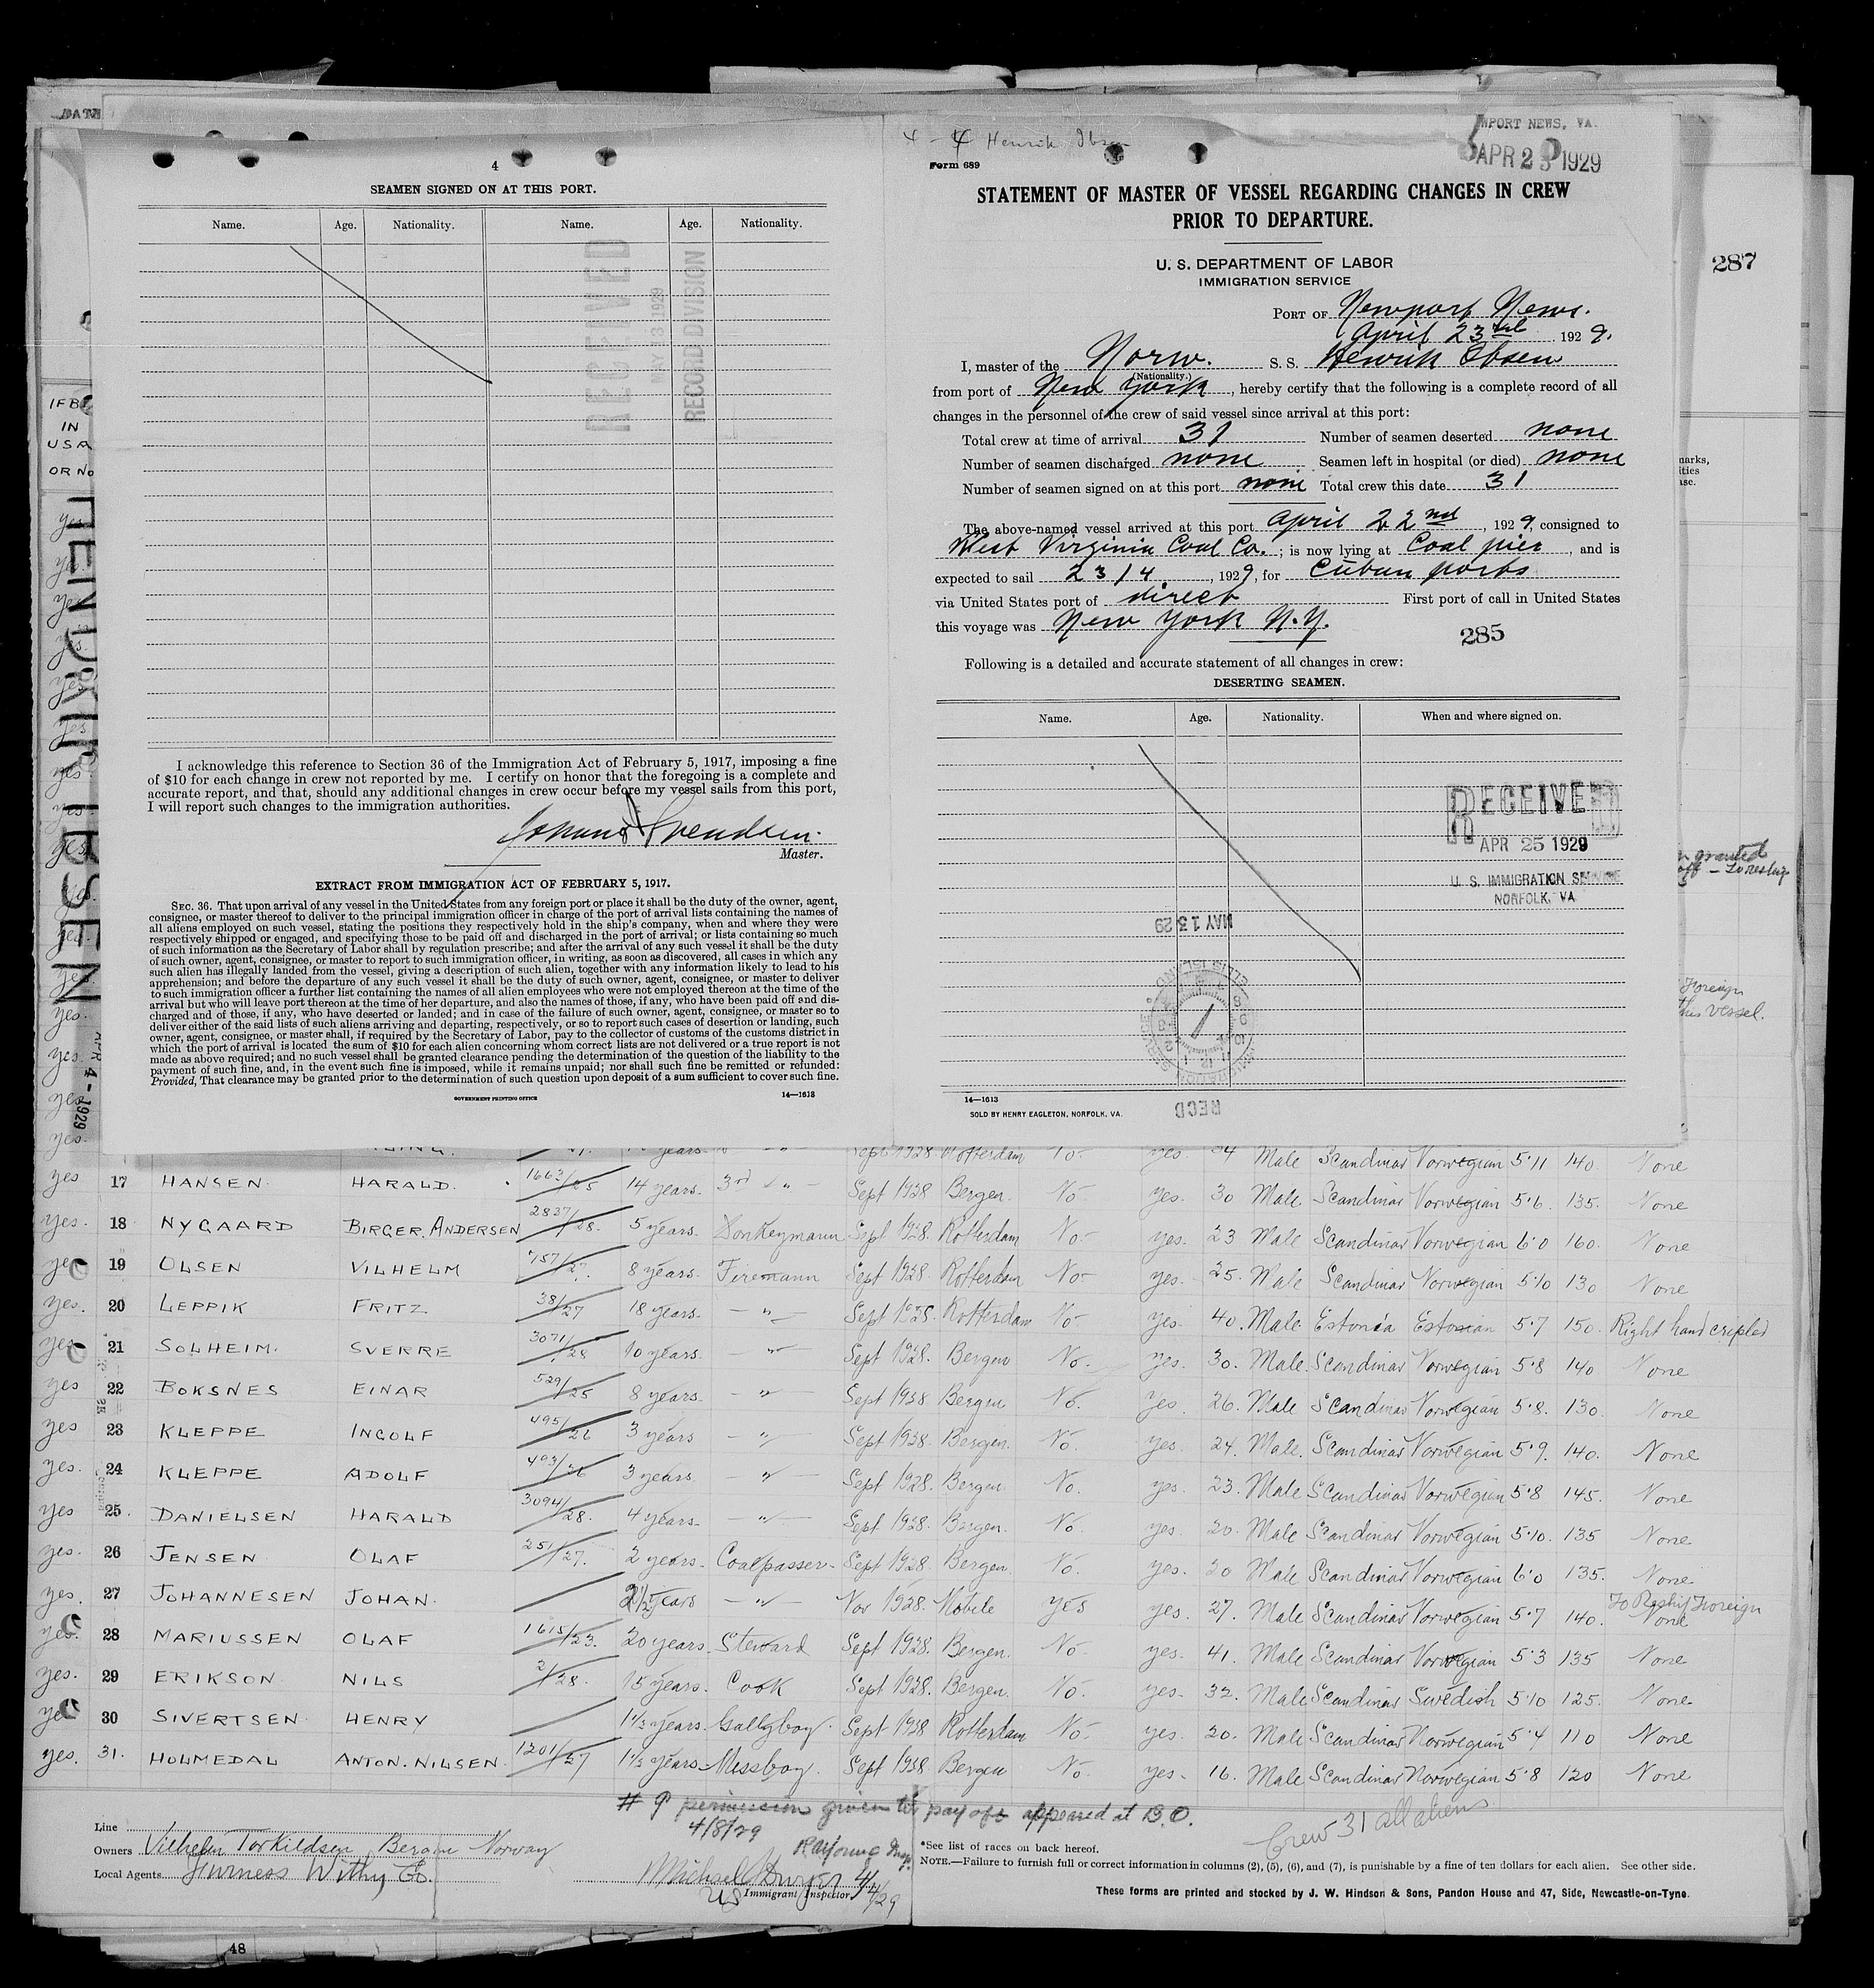 DATE
4
SEAMEN SIGNED ON AT THIS PORT.
Name. Age. Nationality. Name. Age. Nationality.
RECEIVED
MAY 13 1929
RECORD DIVISION
I acknowledge this reference to Section 36 of the Immigration Act of February 5, 1917, imposing a fine
of $10 for each change in crew not reported by me. I certify on honor that the foregoing is a complete and
accurate report, and that, should any additional changes in crew occur before my vessel sails from this port,
I will report such changes to the immigration authorities.
Svendsen
Master.
EXTRACT FROM IMMIGRATION ACT OF FEBRUARY 5, 1917.
SEC. 36. That upon arrival of any vessel in the United States from any foreign port or place it shall be the duty of the owner, agent,
consignee, or master thereof to deliver to the principal immigration officer in charge of the port of arrival lists containing the names of
all aliens employed on such vessel, stating the positions they respectively hold in the ship's company, when and where they were
respectively shipped or engaged, and specifying those to be paid off and discharged in the port of arrival; or lists containing so much
of such information as the Secretary of Labor shall by regulation prescribe; and after the arrival of any such vessel it shall be the duty
of such owner, agent, consignee, or master to report to such immigration officer, in writing, as soon as discovered, all cases in which any
such alien has illegally landed from the vessel, giving a description of such alien, together with any information likely to lead to his
apprehension; and before the departure of any such vessel it shall be the duty of such owner, agent, consignee, or master to deliver
to such immigration officer a further list containing the names of all alien employees who were not employed thereon at the time of the
arrival but who will leave port thereon at the time of her departure, and also the names of those, if any, who have been paid off and dis-
charged and of those, if any, who have deserted or landed; and in case of the failure of such owner, agent, consignee, or master so to
deliver either of the said lists of such aliens arriving and departing, respectively, or so to report such cases of desertion or landing, such
owner, agent, consignee, or master shall, if required by the Secretary of Labor, pay to the collector of customs of the customs district in
which the port of arrival is located the sum of $10 for each alien concerning whom correct lists are not delivered or a true report is not
made as above required; and no such vessel shall be granted clearance pending the determination of the question of the liability to the
payment of such fine, and, in the event such fine is imposed, while it remains unpaid; nor shall such fine be remitted or refunded:
Provided, That clearance may be granted prior to the determination of such question upon deposit of a sum sufficient to cover such fine.
GOVERNMENT PRINTING OFFICE 14—1613
4 - 4 Henrik Ibsen
Form 689
NEWPORT NEWS, VA.
APR 23 1929
STATEMENT OF MASTER OF VESSEL REGARDING CHANGES IN CREW
PRIOR TO DEPARTURE.
U. S. DEPARTMENT OF LABOR
IMMIGRATION SERVICE
PORT OF Newport News.
April 23rd 1929.
I, master of the Norw. S. S. Henrik Ibsen
(Nationality.)
from port of New York, hereby certify that the following is a complete record of all
changes in the personnel of the crew of said vessel since arrival at this port:
Total crew at time of arrival 31 Number of seamen deserted none
Number of seamen discharged none Seamen left in hospital (or died) none
Number of seamen signed on at this port none Total crew this date 31
The above-named vessel arrived at this port April 22nd, 1929, consigned to
West Virginia Coal Co.; is now lying at Coal pier, and is
expected to sail 23/4, 1929, for Cuban ports
via United States port of direct First port of call in United States
this voyage was New York N.Y.
285
Following is a detailed and accurate statement of all changes in crew:
DESERTING SEAMEN.
Name. Age. Nationality. When and where signed on.
RECEIVED
APR 25 1929
U. S. IMMIGRATION SERVICE
NORFOLK, VA
MAY 13 29
RECD
14—1613
SOLD BY HENRY EAGLETON, NORFOLK, VA.
287
IF B
IN
USA
OR No
HENRIK IBSEN
APR 4-1929
granted
Foreign
this vessel.
years Sept 1928 Rotterdam No yes 34 Male Scandinav Norwegian 5'11 140 None
yes 17 HANSEN HARALD. 1663/25 14 years. 3rd " Sept 1928 Bergen. No yes. 30 Male Scandinav Norwegian 5'6. 135. None
yes. 18 NYGAARD BIRGER. ANDERSEN 2837/28. 5 years. Donkeymann Sept 1928. Rotterdam No yes. 23 Male Scandinav Norwegian 6'0 160. None
yes 19 OLSEN VILHELM 757/27. 8 years. Firemann Sept 1928. Rotterdam No yes. 25. Male Scandinav Norwegian 5'10 130 None
yes. 20 LEPPIK FRITZ 38/27 18 years. — " — Sept 1928. Rotterdam No yes. 40. Male Estonia Estonian 5'7 150. Right hand cripled
yes 21 SOLHEIM. SVERRE 3071/28 10 years. — " — Sept 1928. Bergen No. yes. 30. Male Scandinav Norwegian 5'8 140 None
yes 22 BOKSNES EINAR 529/25 8 years. — " — Sept 1928. Bergen No. yes. 26. Male Scandinav Norwegian 5'8. 130 None
yes 23 KLEPPE INGOLF 495/26 3 years — " — Sept 1928. Bergen. No. yes. 24. Male. Scandinav Norwegian 5'9. 140. None
yes. 24 KLEPPE ADOLF 493/26 3 years. — " — Sept 1928. Bergen. No. yes. 23. Male Scandinav Norwegian 5'8 145. None
yes 25. DANIELSEN HARALD 3094/28. 4 years. — " — Sept 1928. Bergen. No. yes. 20. Male Scandinav Norwegian 5'10. 135 None
yes. 26 JENSEN OLAF 251/27. 2 years. Coalpasser. Sept 1928. Bergen. No. yes. 20 Male Scandinav Norwegian 6'0 135. None
yes. 27 JOHANNESEN JOHAN. 2 1/2 years — " — Nov 1928. Mobile yes yes. 27. Male Scandinav Norwegian 5'7 140. None To Reship Foreign
yes. 28 MARIUSSEN OLAF 1615/23. 20 years. Steward Sept 1928. Bergen. No yes. 41. Male Scandinav Norwegian 5'3 135 None
yes. 29 ERIKSON NILS 2/28. 15 years. Cook Sept 1928. Bergen. No. yes. 32. Male Scandinav Swedish 5'10 125. None
yes 30 SIVERTSEN HENRY 1 1/2 years. Galleyboy. Sept 1928 Rotterdam No. yes. 20. Male Scandinav Norwegian 5'4 110 None
yes. 31. HOLMEDAL ANTON. NILSEN. 1201/27 1 1/2 years Messboy. Sept 1928. Bergen No. yes. 16. Male Scandinav Norwegian 5'8 120 None
# 9 permission given to pay off appeared at B.O.
4/8/29
Crew 31 all aliens
Line
Owners Vilhelm Torkildsen Bergen Norway
Local Agents Furness Withy Co.
Michael Dwyer 4/4/29
US Immigrant Inspector
*See list of races on back hereof.
NOTE.—Failure to furnish full or correct information in columns (2), (5), (6), and (7), is punishable by a fine of ten dollars for each alien. See other side.
These forms are printed and stocked by J. W. Hindson & Sons, Pandon House and 47, Side, Newcastle-on-Tyne.
48